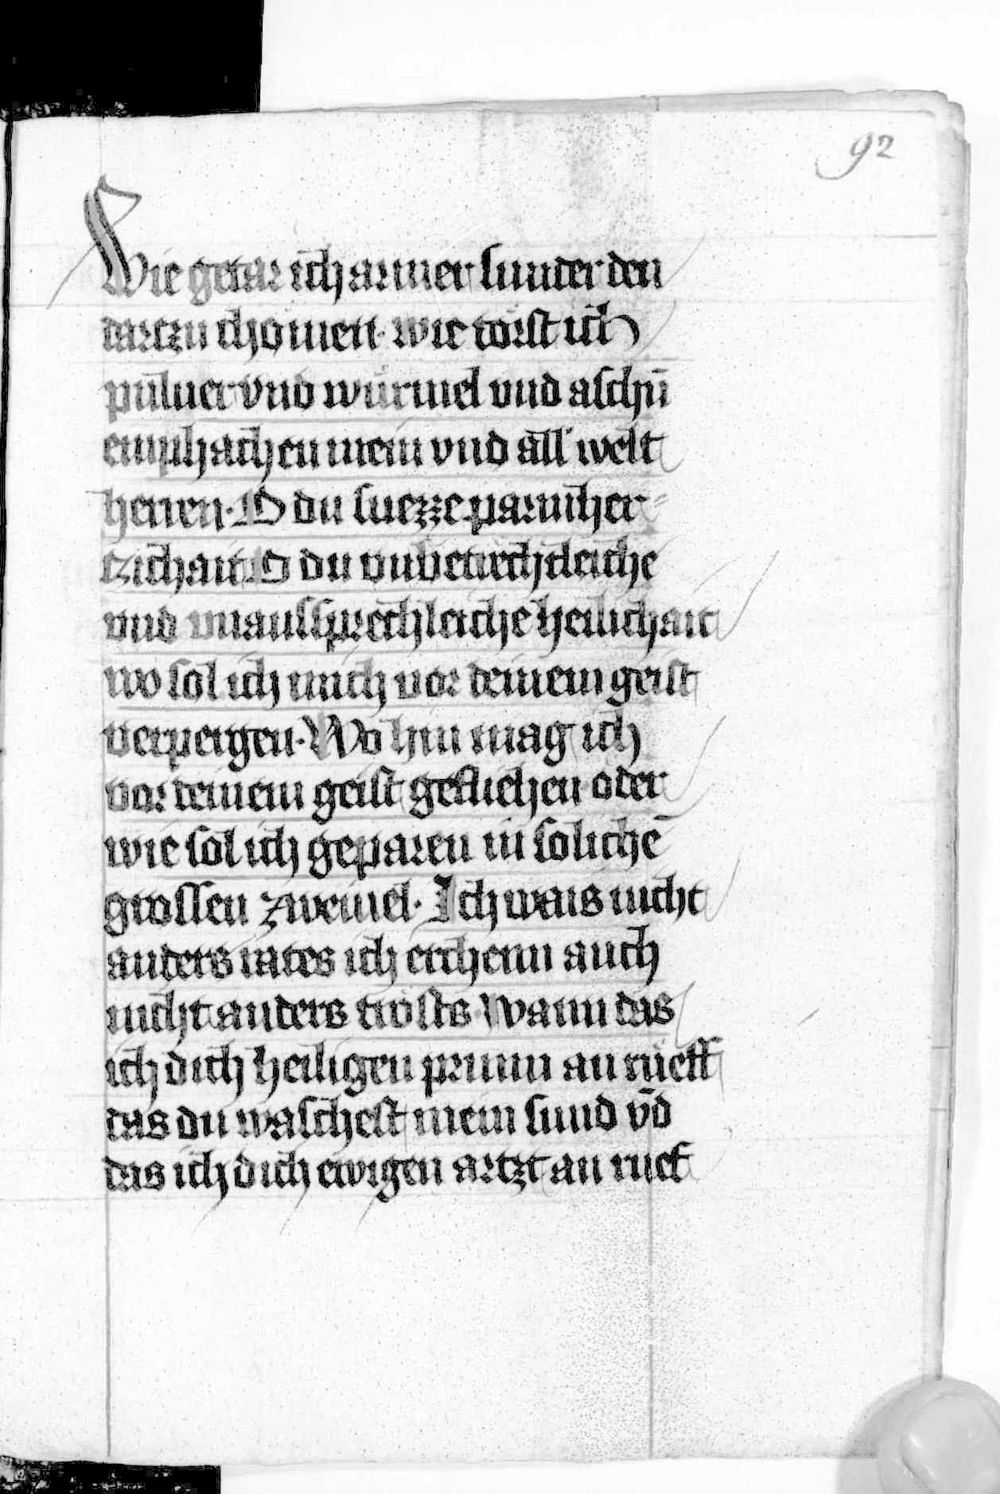 92
Wie getar ich armer sunder den
dartzu chomen· wie törst ich
puluer vnd würmel vnd aschn̄
emphachen mein vnd all' welt
herren· O du suezze parmher
tzichait O du vnbetrechtleiche
vnd vnaussprechleiche heilichait
wo sol ich mich vor deinem geist
verpergen· Wo hin mag ich
vor deinem geist gefliehen oder
wie sol ich geparen in solichē
grossen zweiuel· Ich wais nicht
anders rates ich erchenn auch
nicht anders trösts· Wann das
ich dich heiligen prunn an rueff
das du waschest mein sund vn̄d
das ich dich ewigen artzt an ruef